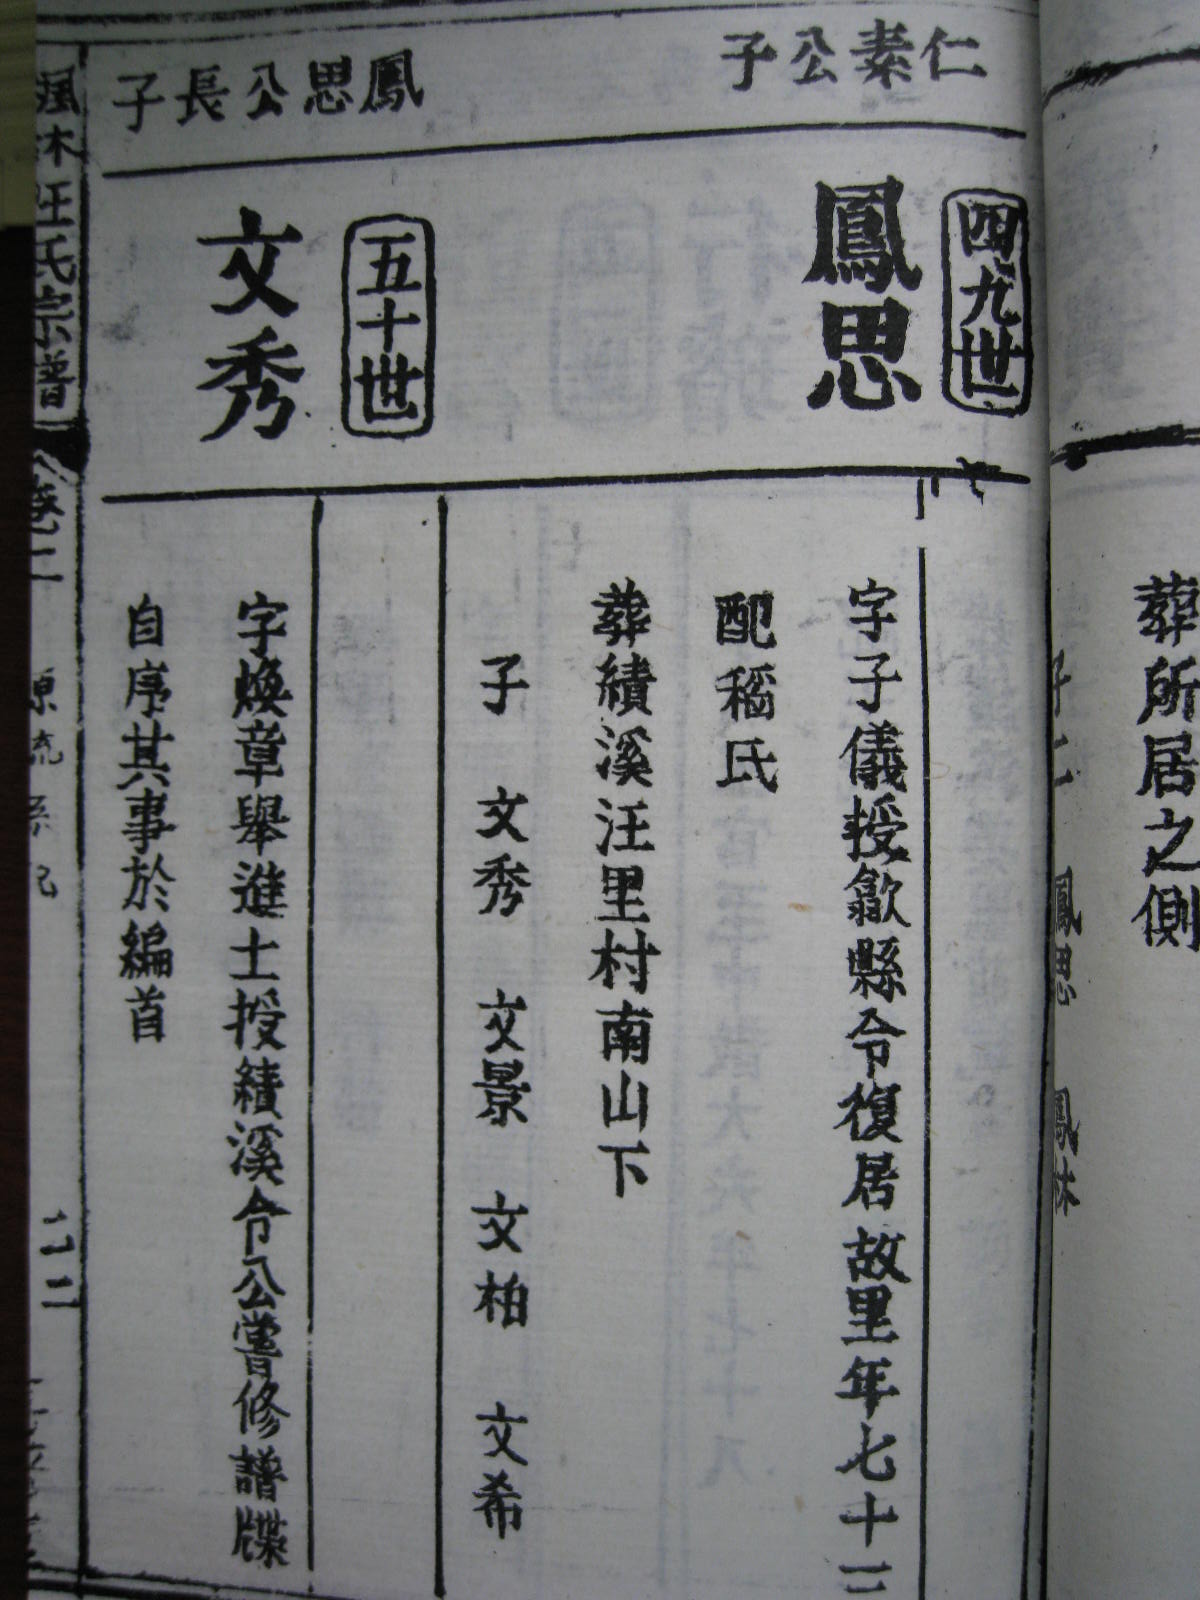 葬所居之側
鳳思 鳳林
仁素公子
四九世
鳳思
字子儀授歙縣令復居故里年七十二
配嵇氏
葬績溪汪里村南山下
子 文秀 文景 文柏 文希
鳳思公長子
五十世
文秀
字煥章舉進士授績溪令公嘗修譜牒
自序其事於編首
汪氏宗譜
卷二
二二